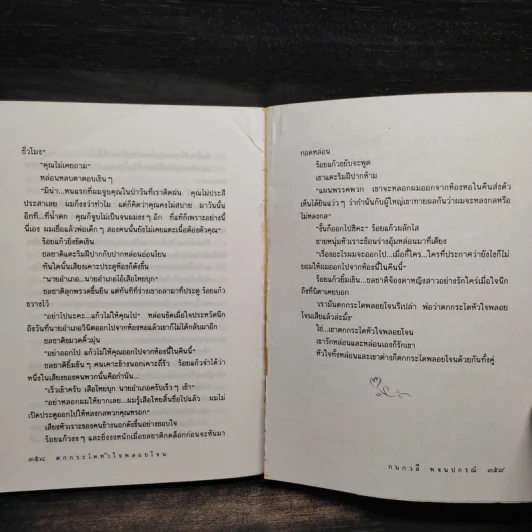 ชั่วโมง"
"คุณไม่เคยถาม"
หล่อนหลบตาตอบเขิน ๆ
"มิน่า...หนแรกที่ผมจูบคุณในป่าวันที่เราติดฝน คุณไม่ประสี
ประสาเลย ผมก็งงว่าทำไม แต่ก็คิดว่าคุณคงไม่สบาย มาวันนั้น
อีกที...ที่น้ำตก คุณก็จูบไม่เป็นจนผมงง ๆ อีก ที่แท้ก็เพราะอย่างนี้
นี่เอง ผมเชื่อแล้วพ่อเด็ก ๆ สองคนนั้นยังไม่เคยแตะเนื้อต้องตัวคุณ"
ร้อยแก้วยิ่งขัดเขิน
ชลชาติแตะริมฝีปากกับปากหล่อนอ่อนโยน
ทันใดนั้นเสียงเคาะประตูห้องก็ดังขึ้น
"นายอำเภอ...นายอำเภอโอ้เสือไทยบุก"
ชลชาติลุกพรวดขึ้นยืน แต่ทันทีที่ร่างเขาถลามาที่ประตู ร้อยแก้ว
ขวางไว้
"อย่าไปนะคะ...แก้วไม่ให้คุณไป" หล่อนยึดเมื่อใจประหวัดนึก
ถึงวันที่นายอำเภอวินิตออกไปจากห้องหอแล้วเขาก็ไม่ได้กลับมาอีก
ชลชาติขมวดคิ้วมุ่น
"อย่าออกไป แก้วไม่ให้คุณออกไปจากห้องนี้ในคืนนี้"
ชลชาติยิ้มขัน ๆ คนเคาะข้างนอกเคาะถี่รัว ร้อยแก้วจำได้ว่า
หนึ่งในเสียงของคนพวกนั้นคือกำนัน...
"เร็วเข้าครับ เสือไทยบุก นายอำเภอครับเร็ว ๆ เข้า"
"อย่าหลอกผมให้ยากเลย...ผมรู้เสือไทยสิ้นชื่อไปแล้ว ผมไม่
เปิดประตูออกไปให้หลงกลพวกคุณหรอก"
เสียงหัวเราะของคนข้างนอกดังขึ้นอย่างชอบใจ
ร้อยแก้วงง ๆ และยิ่งงงหนักเมื่อชลชาติกดล็อกก่อนจะหันมา
๓๕๘ ตกกระไดหัวใจพลอยโจน
กอดหล่อน
ร้อยแก้วขยับจะพูด
เขาแตะริมฝีปากห้าม
"แผนพรรคพวก เขาจะหลอกผมออกจากห้องหอในคืนส่งตัว
เห็นได้ยินแว่ว ๆ ว่ากำนันกับผู้ใหญ่เขาทายผลกันว่าผมจะหลงกลหรือ
ไม่หลงกล"
"งั้นก็ออกไปซิคะ" ร้อยแก้วผลักไส
ชายหนุ่มหัวเราะช้อนร่างอุ้มหล่อนมาที่เตียง
"เรื่องอะไรผมจะออกไป...เมื่อกี้ใคร...ใครที่ประกาศว่ายังไงก็ไม่
ยอมให้ผมออกไปจากห้องนี้คืนนี้"
ร้อยแก้วยิ้มเขิน...ชลชาติจ้องตาหญิงสาวอย่างรักใคร่เมื่อใจนึก
ถึงที่บิดาเคยบอก
'เรามันตกกระไดพลอยโจนรึเปล่า พ่อว่าตกกระไดหัวใจพลอย
โจนเสียแล้วล่ะมั้ง'
ใช่...เขาตกกระไดหัวใจพลอยโจน
เขารักหล่อนและหล่อนเองก็รักเขา
หัวใจทั้งหล่อนและเขาต่างก็ตกกระไดพลอยโจนด้วยกันทั้งคู่
กนกวลี พจนปกรณ์ ๓๕๙